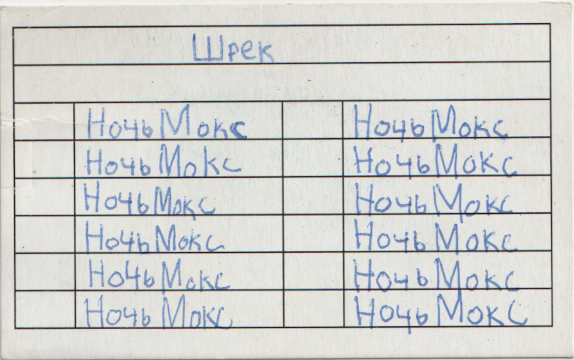 Шрек
НочьМокс НочьМокс
НочьМокс НочьМокс
НочьМокс НочьМокс
НочьМокс НочьМокс
НочьМокс НочьМокс
НочьМокс НочьМокс